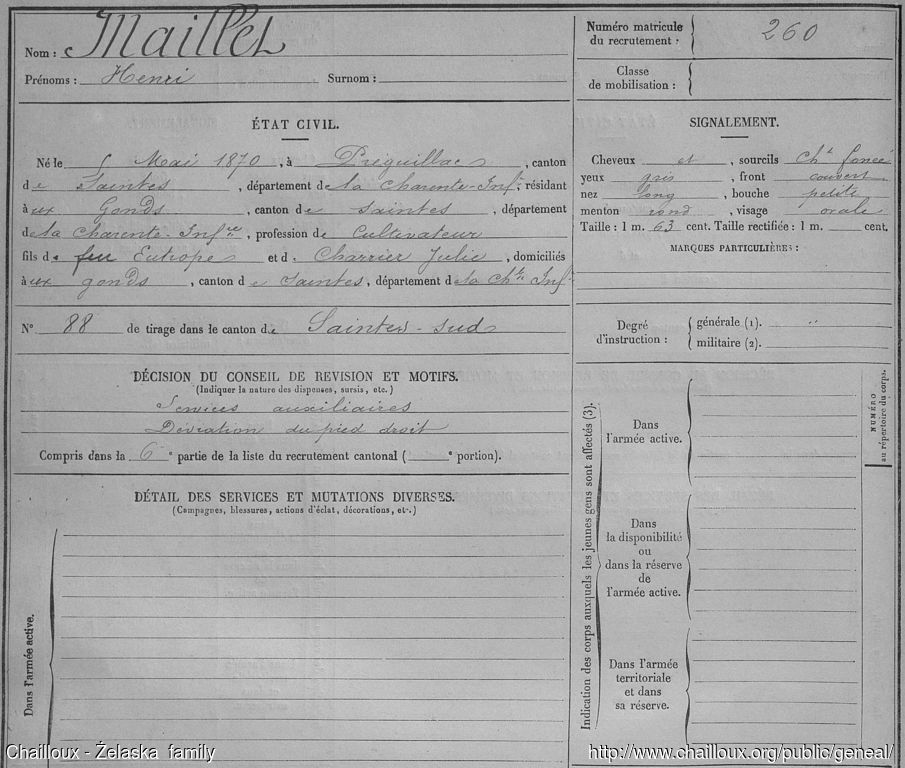 Nom : Maillet
Prénoms : Henri Surnom :
Numéro matricule
du recrutement : 260
Classe
de mobilisation :
ÉTAT CIVIL.
Né le 5 Mai 1870, à Préguillac, canton
de Saintes, département de la Charente-Infre, résidant
à ux Gonds, canton de Saintes, département
de la Charente-Infre, profession de Cultivateur
fils de feu Eutrope et de Charrier Julie, domiciliés
à ux gonds, canton de Saintes, département de la Chte Inf
N° 88 de tirage dans le canton de Saintes-sud
DÉCISION DU CONSEIL DE REVISION ET MOTIFS.
(Indiquer la nature des dispenses, sursis, etc.)
Services auxiliaires
Déviation du pied droit
Compris dans la 6e partie de la liste du recrutement cantonal ( e portion).
DÉTAIL DES SERVICES ET MUTATIONS DIVERSES.
(Campagnes, blessures, actions d'éclat, décorations, etc.)
Dans l'armée active.
SIGNALEMENT.
Cheveux et, sourcils cht foncé
yeux gris, front couvert
nez long, bouche petite
menton rond, visage ovale
Taille : 1 m. 63 cent. Taille rectifiée : 1 m. cent.
MARQUES PARTICULIÈRES :
Degré
d'instruction :
générale (1). "
militaire (2).
Indication des corps auxquels les jeunes gens sont affectés (3).
Dans
l'armée active.
Dans
la disponibilité
ou
dans la réserve
de
l'armée active.
Dans l'armée
territoriale
et dans
sa réserve.
NUMÉRO
au répertoire du corps.
Chailloux - Żelaska family
http://www.chailloux.org/public/geneal/